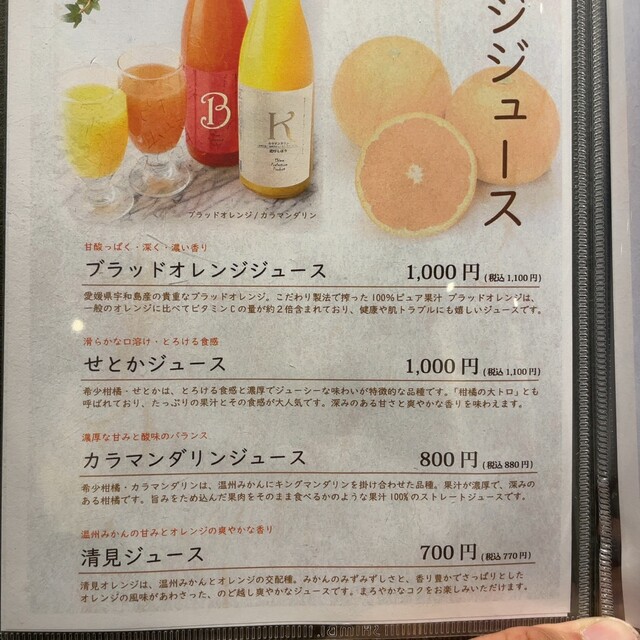 ジジュース
B
K
ブラッドオレンジ / カラマンダリン
甘酸っぱく・深く・濃い香り
ブラッドオレンジジュース 1,000円 (税込1,100円)
愛媛県宇和島産の貴重なブラッドオレンジ。こだわり製法で搾った100%ピュア果汁 ブラッドオレンジは、
一般のオレンジに比べてビタミンCの量が約2倍含まれており、健康や肌トラブルにも嬉しいジュースです。
滑らかな口溶け・とろける食感
せとかジュース 1,000円 (税込1,100円)
希少柑橘・せとかは、とろける食感と濃厚でジューシーな味わいが特徴的な品種です。「柑橘の大トロ」とも
呼ばれており、たっぷりの果汁とその食感が大人気です。深みのある甘さと爽やかな香りを味わえます。
濃厚な甘みと酸味のバランス
カラマンダリンジュース 800円 (税込880円)
希少柑橘・カラマンダリンは、温州みかんにキングマンダリンを掛け合わせた品種。果汁が濃厚で、深みの
ある柑橘です。旨みをため込んだ果肉をそのまま食べるかのような果汁100%のストレートジュースです。
温州みかんの甘みとオレンジの爽やかな香り
清見ジュース 700円 (税込770円)
清見オレンジは、温州みかんとオレンジの交配種。みかんのみずみずしさと、香り豊かでさっぱりとした
オレンジの風味があわさった、のど越し爽やかなジュースです。まろやかなコクをお楽しみいただけます。